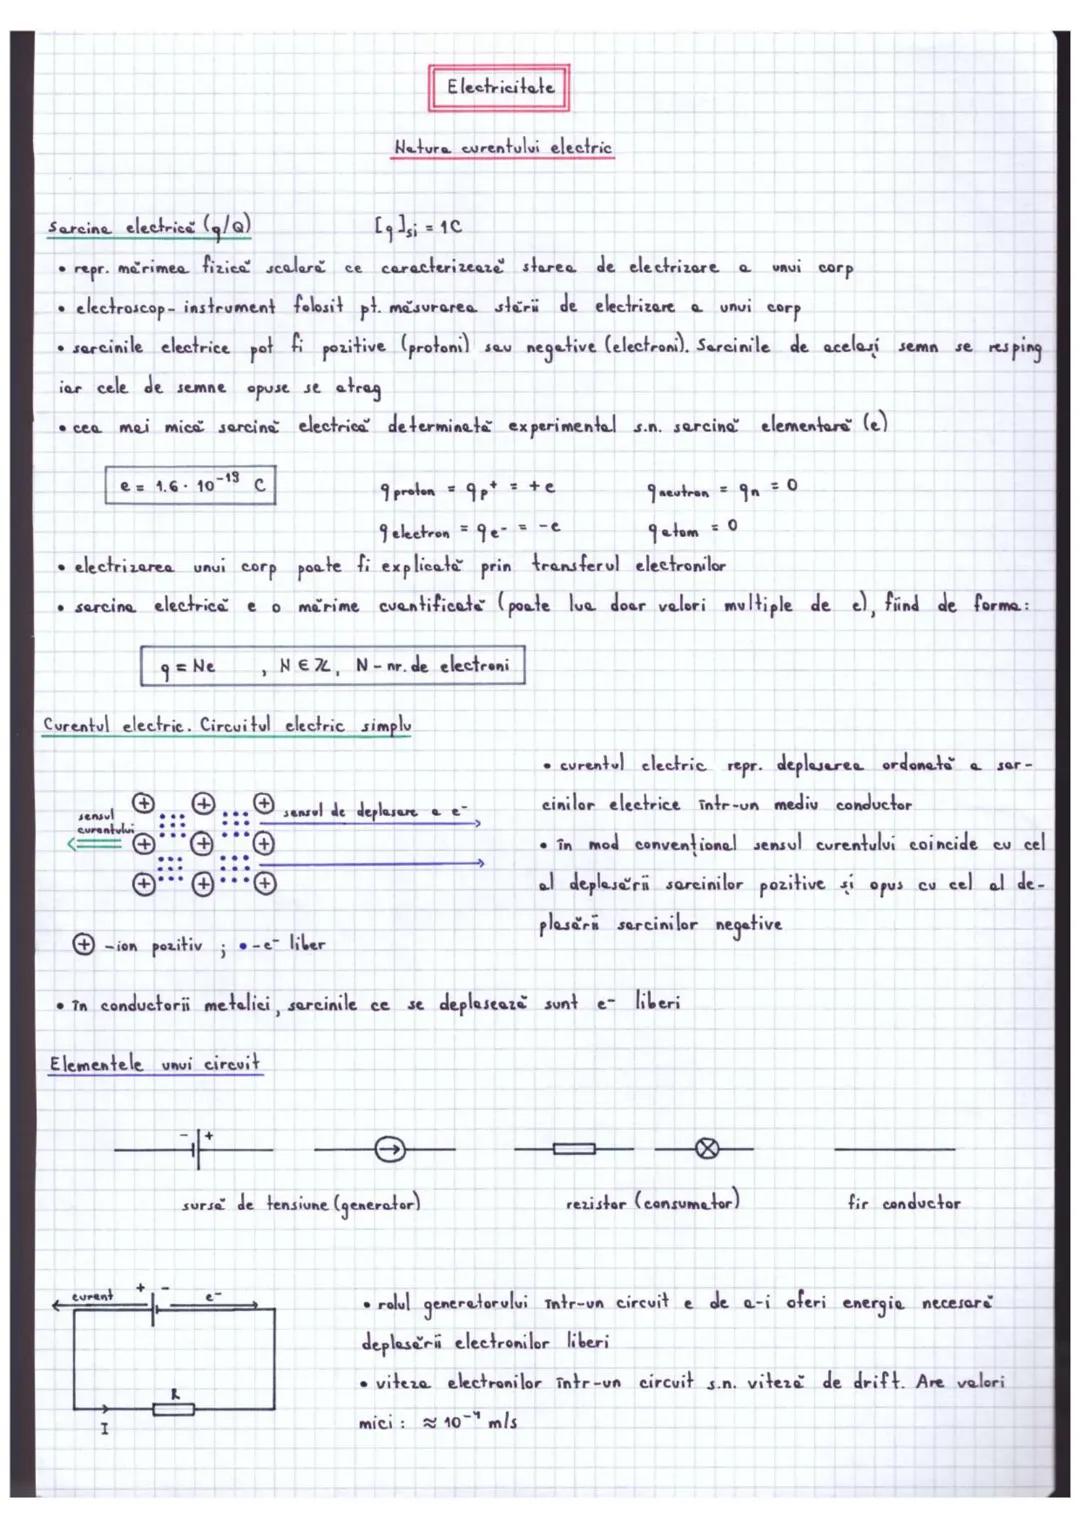 Electricitate
Natura curentului electric
Sarcina electrică (q/Q)
[q]si = 1C
• repr. mărimea fizică scalară ce caracterizează starea de electrizare a unui corp
• electroscop- instrument folosit pt. măsurarea stării de electrizare a unui corp
• sarcinile electrice pot fi pozitive (protoni) sau negative (electroni). Sarcinile de același semn se resping
iar cele de semne opuse se atrag
• cea mai mică sarcină electrică determinată experimental s.n. sarcină elementară (e)
e = 1.6 · 10⁻¹⁹ C
q proton = qp⁺ = +e
q neutron = qn = 0
q electron = qe⁻ = -e
q atom = 0
• electrizarea unui corp poate fi explicată prin transferul electronilor
• sarcina electrică e o mărime cuantificată (poate lua doar valori multiple de e), fiind de forma:
q = Ne , N ∈ ℤ, N - nr. de electroni
Curentul electric. Circuitul electric simplu
sensul
curentului
sensul de deplasare a e⁻
⊕ -ion pozitiv ; • -e⁻ liber
• curentul electric repr. deplasarea ordonată a sar-
cinilor electrice într-un mediu conductor
• în mod convențional sensul curentului coincide cu cel
al deplasării sarcinilor pozitive și opus cu cel al de-
plasării sarcinilor negative
• în conductorii metalici, sarcinile ce se deplasează sunt e⁻ liberi
Elementele unui circuit
- +
sursă de tensiune (generator)
rezistor (consumator)
fir conductor
curent + - e⁻
R
I
• rolul generatorului într-un circuit e de a-i oferi energia necesară
deplasării electronilor liberi
• viteza electronilor într-un circuit s.n. viteză de drift. Are valori
mici : ≈ 10⁻⁴ m/s